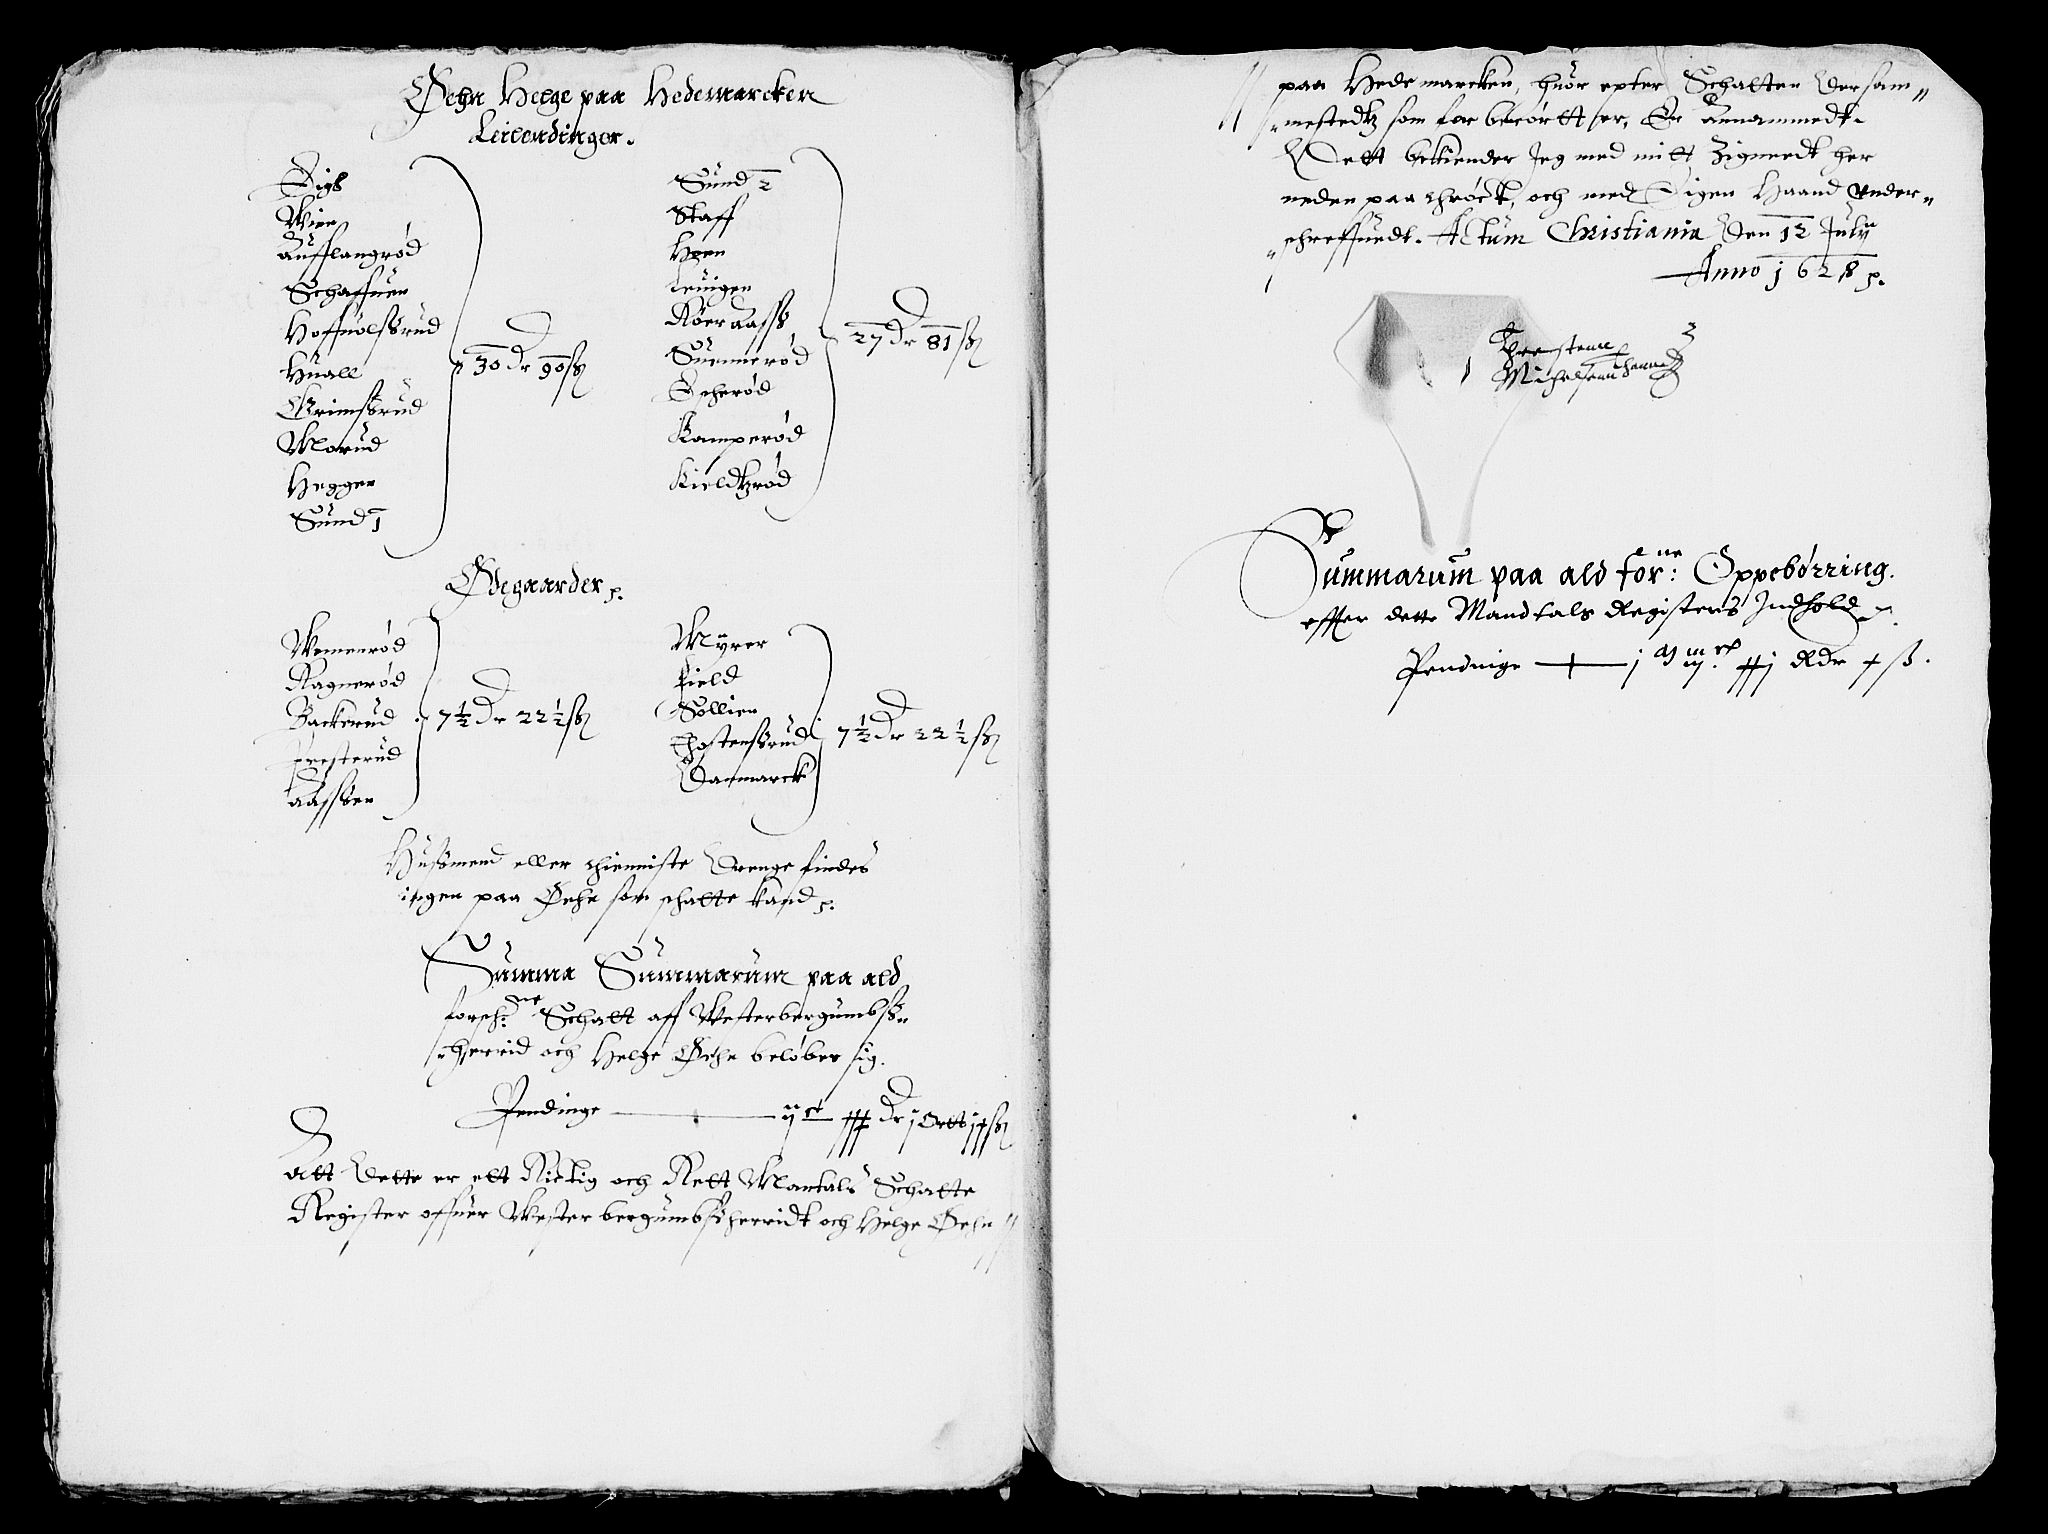 Øehn Helge paa Hedemarcken
Leilendinger.
Eigs
Wien
Aufflangrød
Schaffuen
Hoffuølsrud
Huall
Grimsrud
Marud
Hegger
Sund 1
30 Dr 90 ß
Sund 2
Staff
Hoen
Leuigen
Røer aass
Suennerød
Escherød
Kamperød
Kieldtzrød
27 Dr 81 ß
Ødegaarder
Wemmerød
Ragnerød
Backerud
Presterud
Aassøen
7½ Dr 22½ ß
Myrer
Field
Sollien
Thostensrud
Danmarck
7½ Dr 22½ ß
Husmend eller thienniste Drenge findes
ingen paa Øehn som schatte kand
Summa Summarum paa ald
forsch:ne Schatt aff Westerbergumbs„
„herrid och Helge Øehn beløber sig.
Pendinge ij c Dr j Ortt ß
Att Dette er ett Rictig och Rett Mantals Schatte
Register offuer Wester bergumbsherridt och Helge Øehn
paa Hedemarcken, huor epter Schatten Dersam„
„mestedtz som for berørtt er, Er Annammedt.
Dett bekiender Jeg med mitt Zignedt her
neden paa thrøckt, och med Eigen Haand vnder„
„schreffuedt. Actum Christiania Den 12 July
Anno 1628
Christenn
Michelsenn
Summarum paa ald for:ne Oppebørring.
effter dette Mandtals Registers Indhold
Pendinge j M Rdr ß.